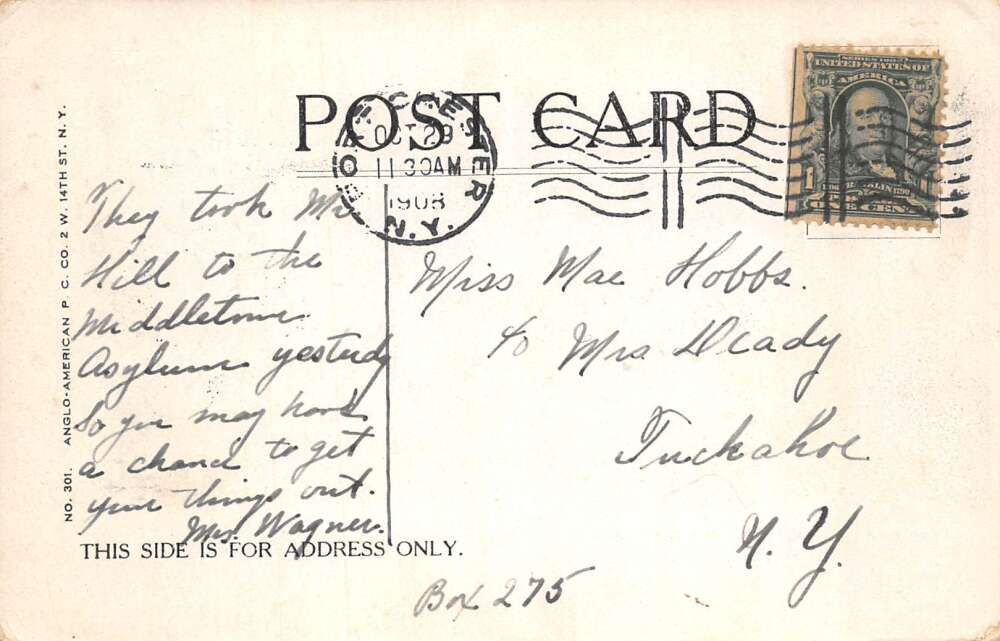 POST CARD
PORT CHESTER
OCT 28
11 30 AM
1908
N.Y.
SERIES 1902
UNITED STATES OF
AMERICA
1
ONE CENT
They took Mr
Hill to the
Middletown
Asylum yesterdy
So you may have
a chance to get
your things out.
Mrs. Wagner.
Miss Mae Hobbs.
c/o Mrs Deady
Tuckahoe
N. Y.
Box 275
THIS SIDE IS FOR ADDRESS ONLY.
NO. 301. ANGLO-AMERICAN P. C. CO. 2 W. 14TH ST. N. Y.